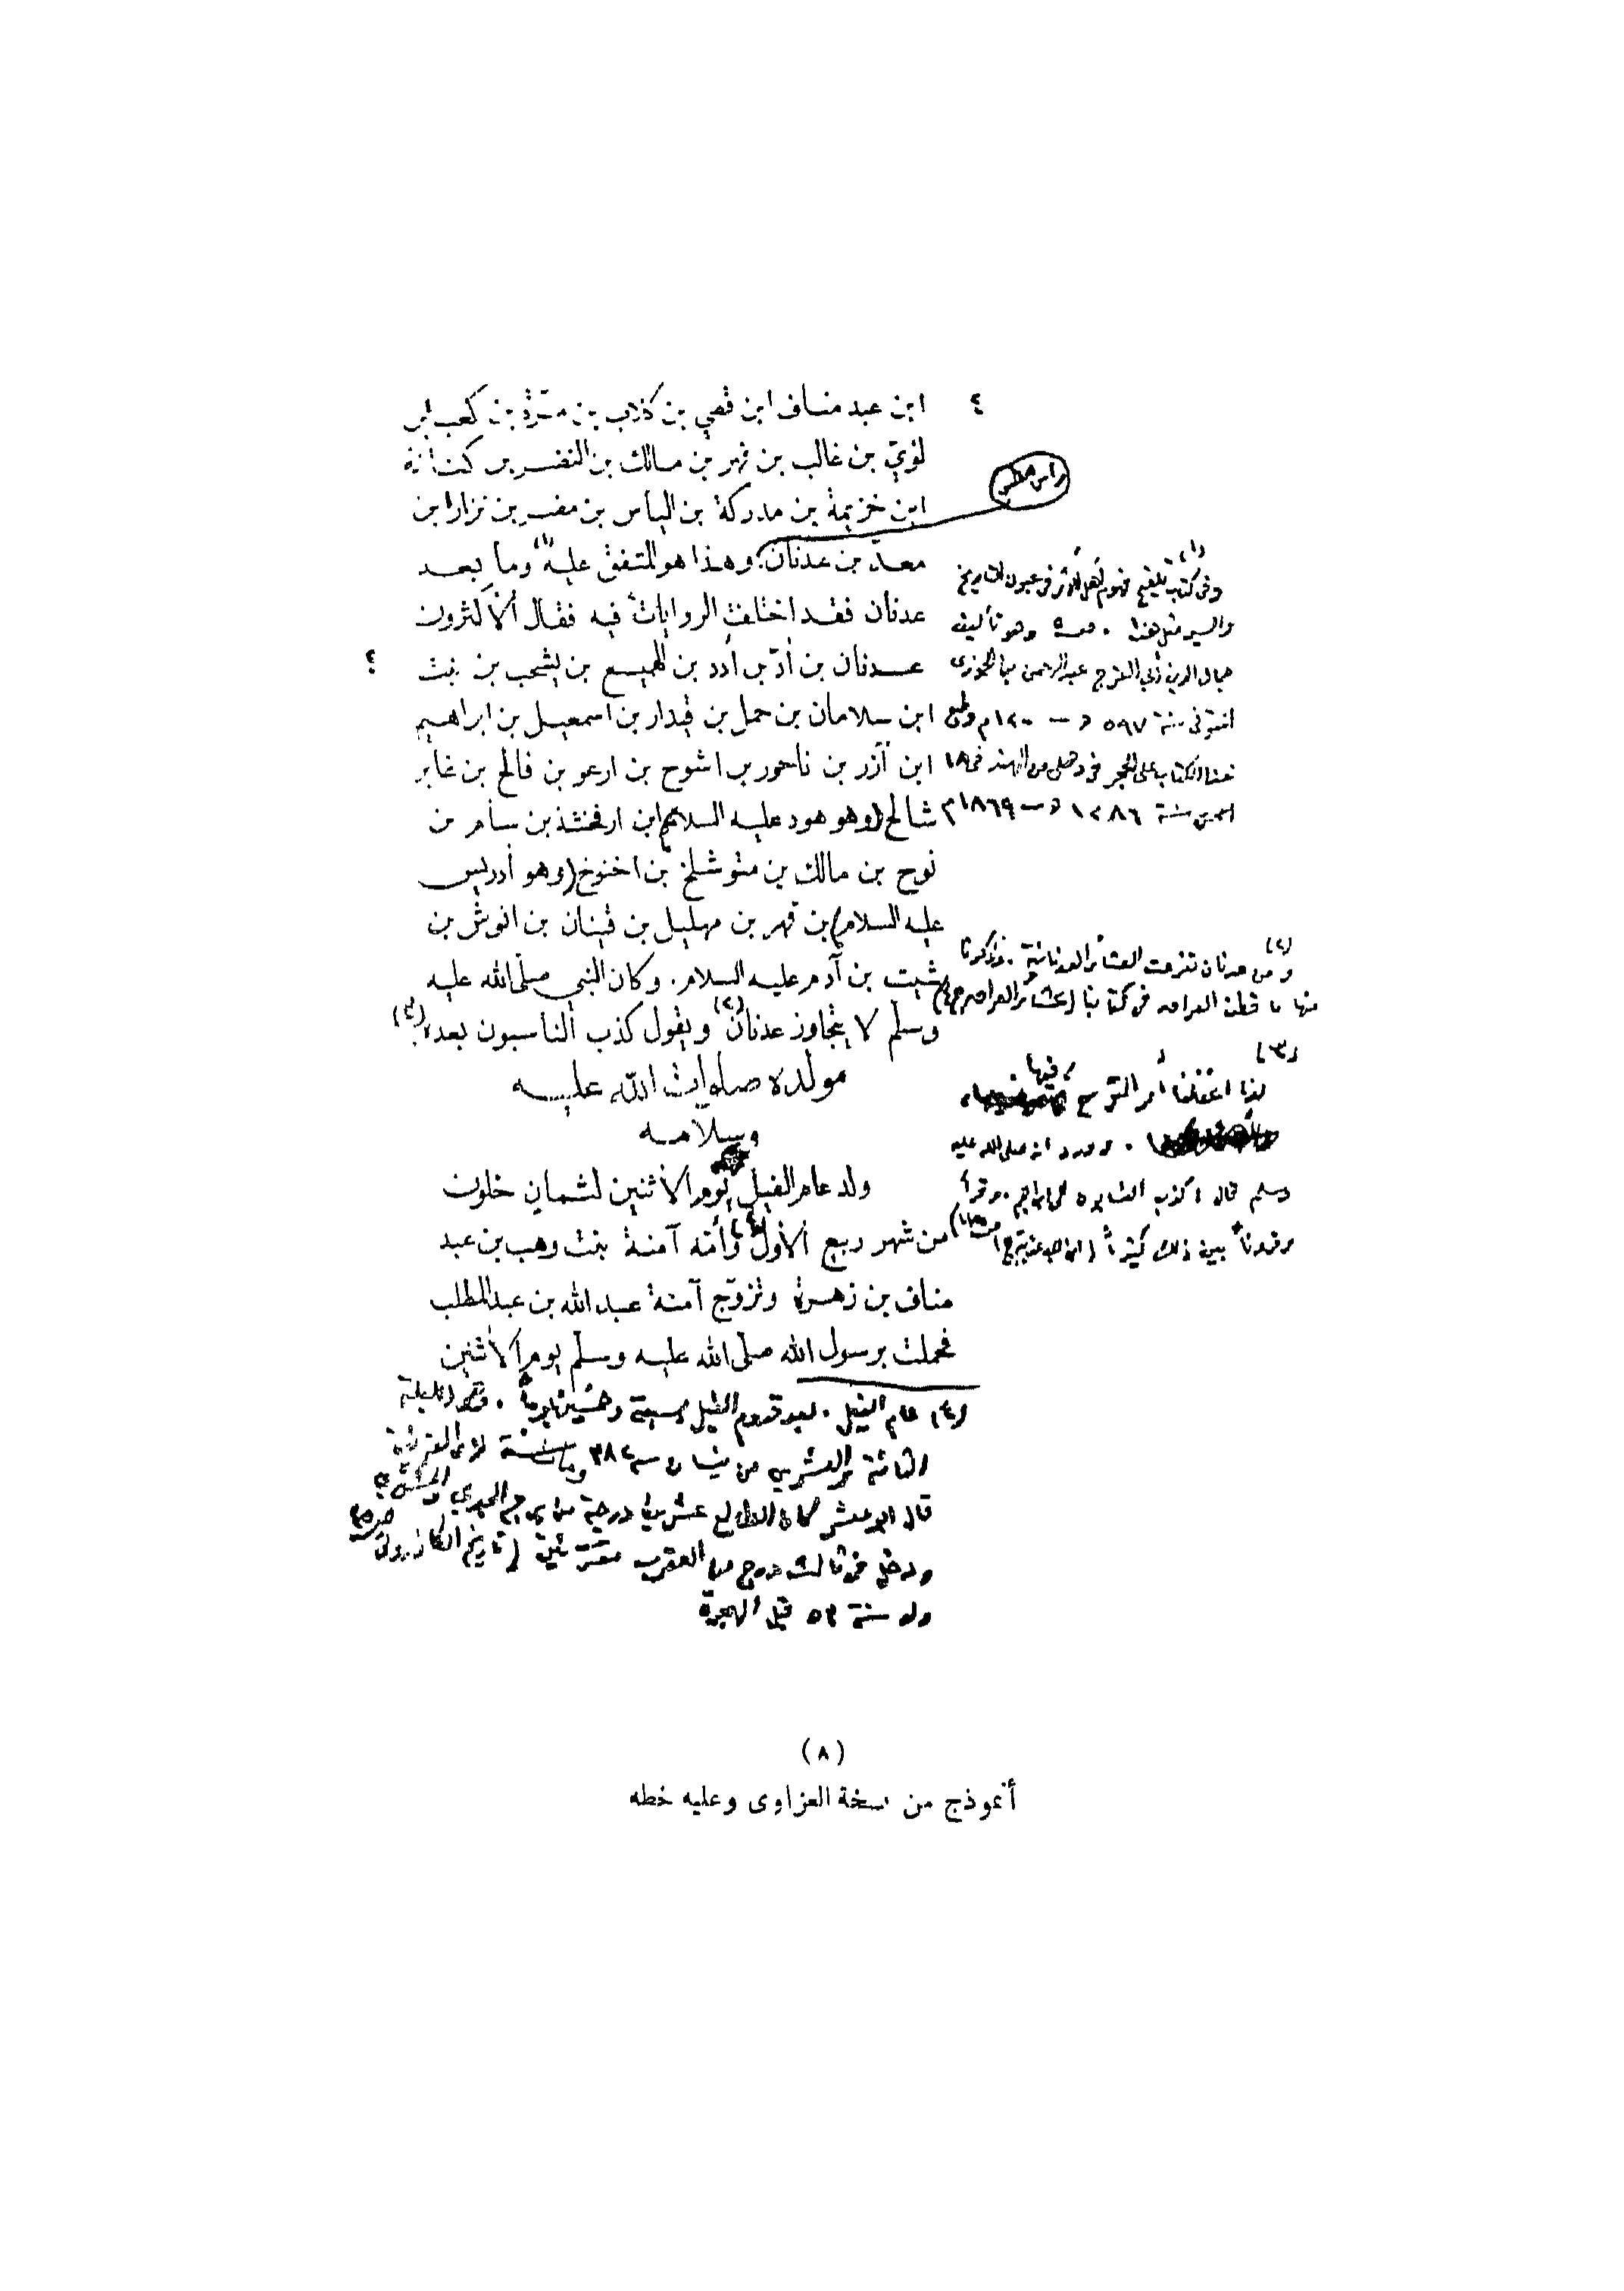 ٤
ابن عبد مناف ابن قصي بن كلاب بن مرّة بن كعب ابن
لؤيّ بن غالب بن فهر بن مالك بن النضر بن كنانة
ابن خزيمة بن مدركة بن الياس بن مضر بن نزار ابن
معدّ بن عدنان. وهذا هو المتفق عليه (١) وما بعد
عدنان فقد اختلفت الروايات فيه فقال الأكثرون
عدنان بن أدّ بن أدد بن الهميسع بن يشحب بن نبت
ابن سلامان بن حمل بن قيدار بن اسمعيل بن ابراهيم
ابن آزر بن ناحور بن اشوح بن ارعو بن فالح بن غابر
شالح (وهو هود عليه السلام) ابن ارفخشذ بن سام بن
نوح بن مالك بن متوشلخ بن اخنوخ (وهو أدريس
عليه السلام) بن قهر بن مهليل بن قينان بن انوش بن
شيت بن آدم عليه السلام. وكان النبي صلى الله عليه
وسلم لا يتجاوز عدنان (٢) ويقول كذب الناسبون بعده (٣)
مولده صلوات الله عليه
وسلامه
ولد عام الفيل يوم الأثنين لثمان خلون
من شهر ربيع الأول (٤) وأمّه آمنة بنت وهب بن عبد
مناف بن زهرة وتزوّج آمنة عبد الله بن عبد المطلب
فحملت برسول الله صلى الله عليه وسلم يوم الأثنين
(١)
وفي كتاب تلقيح فهوم أهل الأثر في عيون التاريخ
والسير مثل هذا . وهو تأليف
جمال الدين أبي الفرج عبد الرحمن بن الجوزي
المتوفى سنة ٥٩٧ هـ – ١٢٠٠م وطبع
هذا الكتاب على الحجر في دهلي من الهند في ١٨
سنة ١٢٨٦ هـ – ١٨٦٩م
(٢)
ومن عدنان تفرعت العشائر العدنانية . وذكرنا
منها ما قطن العراق في كتابنا (عشائر العراق
(٣)
لذا اغفلنا أمر الشرح فيها
وورد انه صلى الله عليه
وسلم قال
وقرونا بين ذلك كثيراً
(٤) عام الفيل . بعد قدوم الفيل بسبعة وخمسين يوماً .
الثامنة والعشرين من نيسان سنة ٣٨٢
قال ابو معشر كان الطالع عشرين درجة من برج الجدي
العقرب (تاريخ الكازروني
ولد سنة ٥٣ قبل الهجرة
(٨)
أنموذج من نسخة العزاوى وعليه خطه